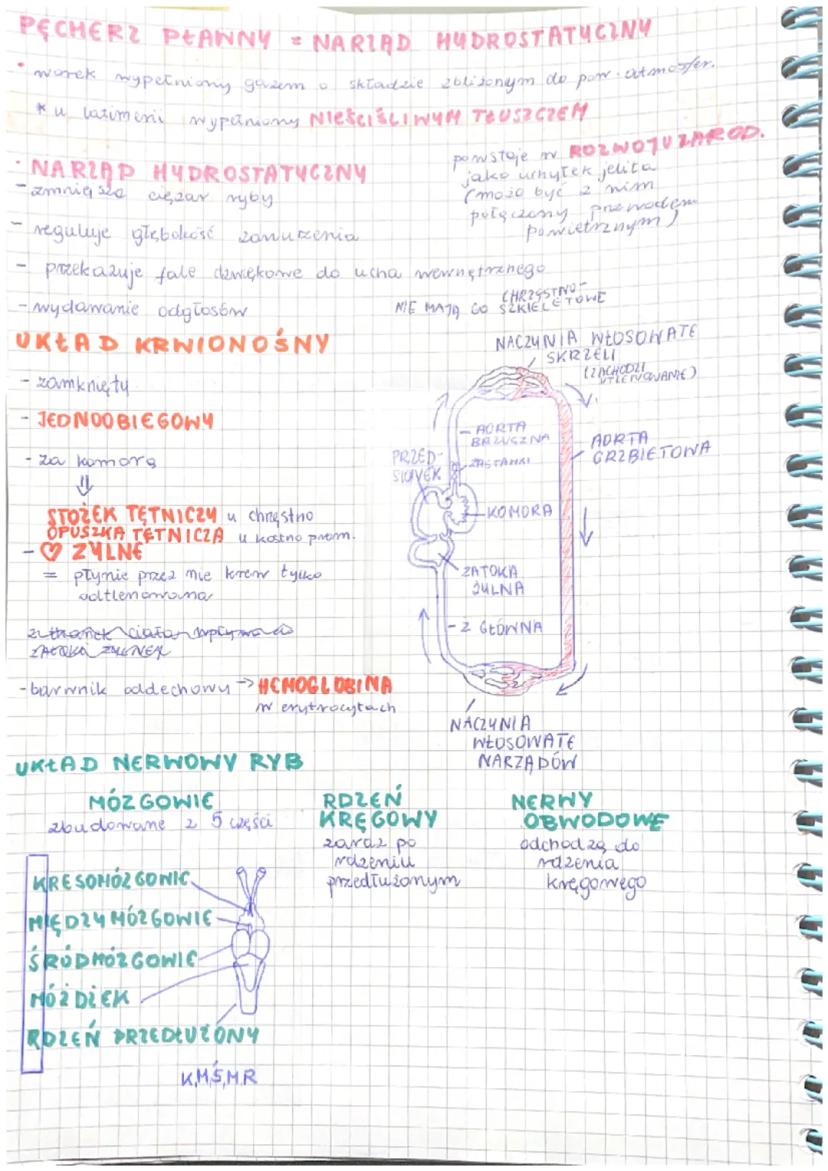 PĘCHERZ PŁAWNY = NARZĄD HYDROSTATYCZNY
• worek wypełniony gazem o składzie zbliżonym do pow. atmosfer.
* u latimerii wypełniony NIEŚCIŚLIWYM TŁUSZCZEM
• NARZĄD HYDROSTATYCZNY
- zmniejsza ciężar ryby
- reguluje głębokość zanurzenia
- przekazuje fale dźwiękowe do ucha wewnętrznego
- wydawanie odgłosów
powstaje w ROZWOJU ZAROD.
jako uchyłek jelita
(może być z nim
połączony przewodem
powietrznym)
NIE MAJĄ GO CHRZĘSTNO-
SZKIELETOWE
UKŁAD KRWIONOŚNY
- zamknięty
- JEDNOOBIEGOWY
- za komorą
⇓
STOŻEK TĘTNICZY u chrzęstno
OPUSZKA TĘTNICZA u kostno prom.
- ♡ ŻYLNE
= płynie przez nie krew tylko
odtlenowana
z tkanek ciała wpływa do
ZATOKA ŻYLNEJ
- barwnik oddechowy → HEMOGLOBINA
w erytrocytach
NACZYNIA WŁOSOWATE
SKRZELI
(ZACHODZI
UTLENOWANIE)
AORTA
BRZUSZNA
AORTA
GRZBIETOWA
PRZED-
SIONEK
ZASTAWKI
KOMORA
ZATOKA
ŻYLNA
Ż GŁÓWNA
NACZYNIA
WŁOSOWATE
NARZĄDÓW
UKŁAD NERWOWY RYB
MÓZGOWIE
zbudowane z 5 części
KRESOMÓZGOWIE
MIĘDZYMÓZGOWIE
ŚRÓDMÓZGOWIE
MÓŻDŻEK
RDZEŃ PRZEDŁUŻONY
K,M,Ś,M,R
RDZEŃ
KRĘGOWY
zaraz po
rdzeniu
przedłużonym
NERWY
OBWODOWE
odchodzą do
rdzenia
kręgowego